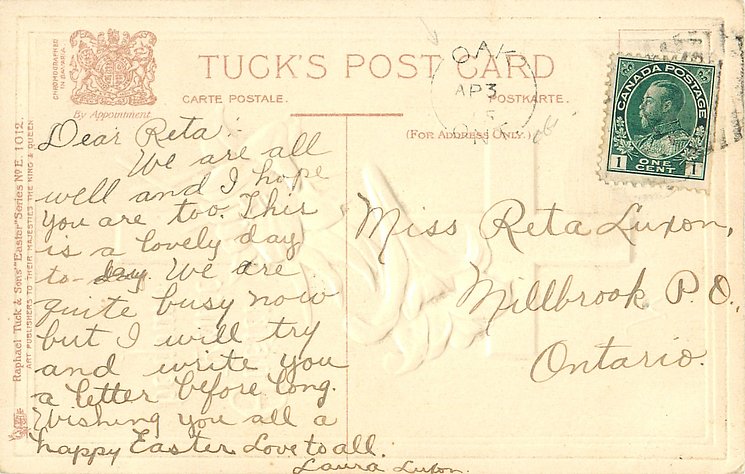 CHROMOGRAPHED
IN BAVARIA
By Appointment
TUCK'S POST CARD
CARTE POSTALE.
POSTKARTE.
(FOR ADDRESS ONLY.)
AP 3
CANADA POSTAGE
1 ONE CENT 1
Raphael Tuck & Sons' "Easter" Series No E. 1012.
ART PUBLISHERS TO THEIR MAJESTIES THE KING & QUEEN
Dear Reta:-
We are all
well and I hope
you are too. This
is a lovely day
to-day. We are
quite busy now
but I will try
and write you
a letter before long.
Wishing you all a
happy Easter Love to all.
Laura Luxon.
Miss Reta Luxon,
Millbrook P.O.,
Ontario.